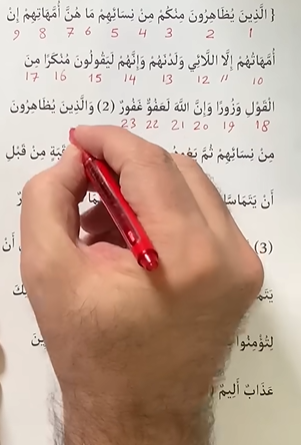 { الَّذِينَ يُظَاهِرُونَ مِنْكُمْ مِنْ نِسَائِهِمْ مَا هُنَّ أُمَّهَاتِهِمْ إِنْ
1 2 3 4 5 6 7 8 9
أُمَّهَاتُهُمْ إِلَّا اللَّائِي وَلَدْنَهُمْ وَإِنَّهُمْ لَيَقُولُونَ مُنْكَرًا مِنَ
10 11 12 13 14 15 16 17
الْقَوْلِ وَزُورًا وَإِنَّ اللَّهَ لَعَفُوٌّ غَفُورٌ (2) وَالَّذِينَ يُظَاهِرُونَ
18 19 20 21 22 23
مِنْ نِسَائِهِمْ ثُمَّ مِنْ قَبْلِ
أَنْ
(3) أَنْ
لِتُؤْمِنُوا
عَذَابٌ أَلِيمٌ